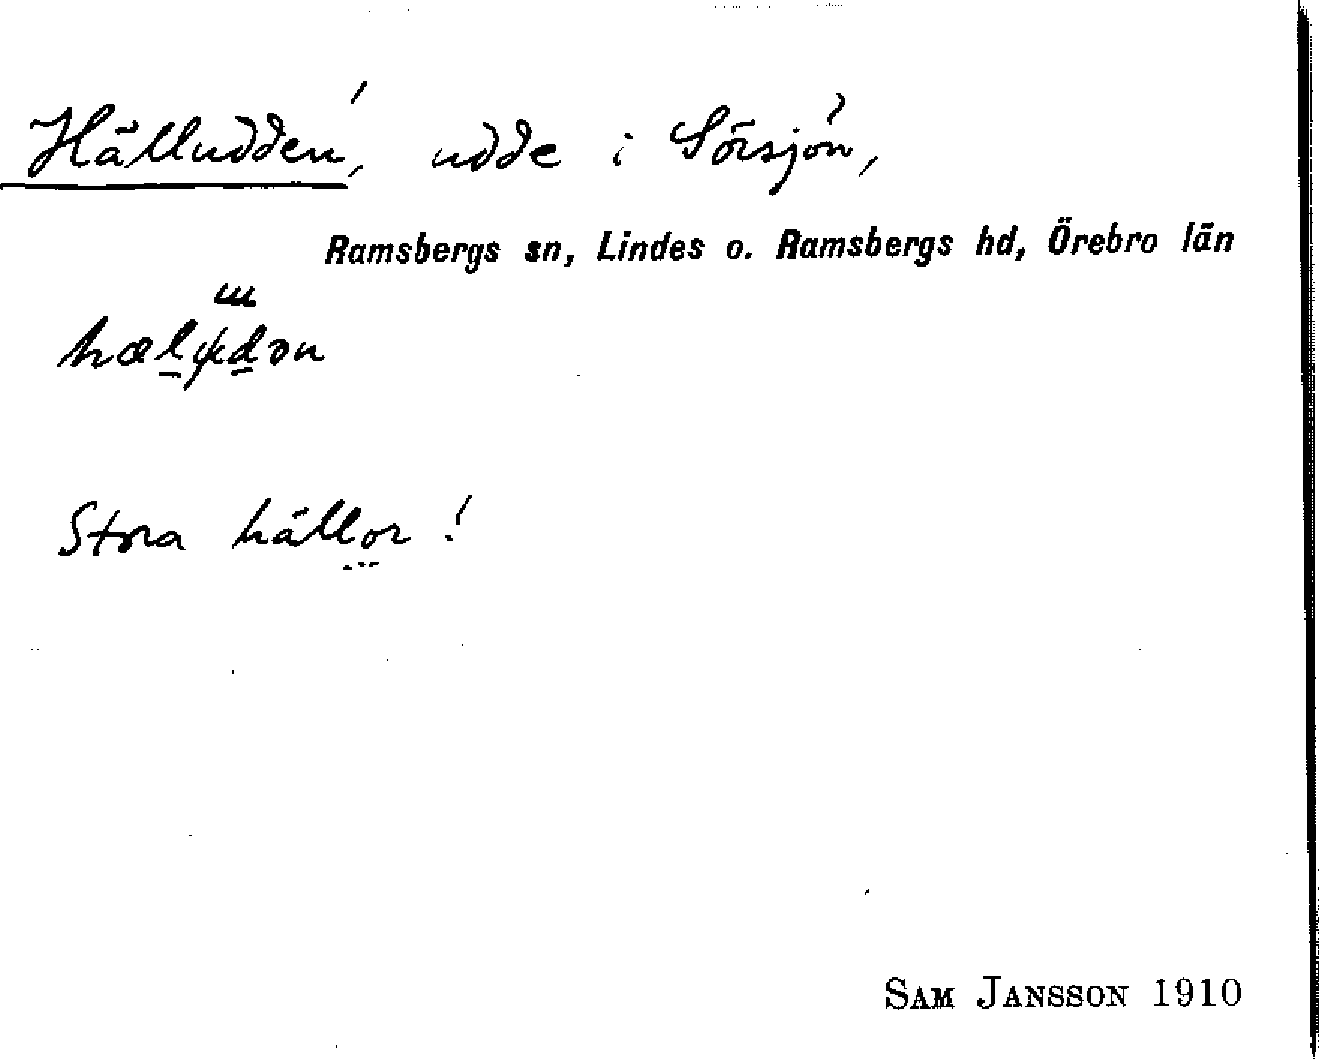 Hälludden, udde i Sörsjön,
Ramsbergs sn, Lindes o. Ramsbergs hd, Örebro län
Stora hällor!
SAM JANSSON 1910